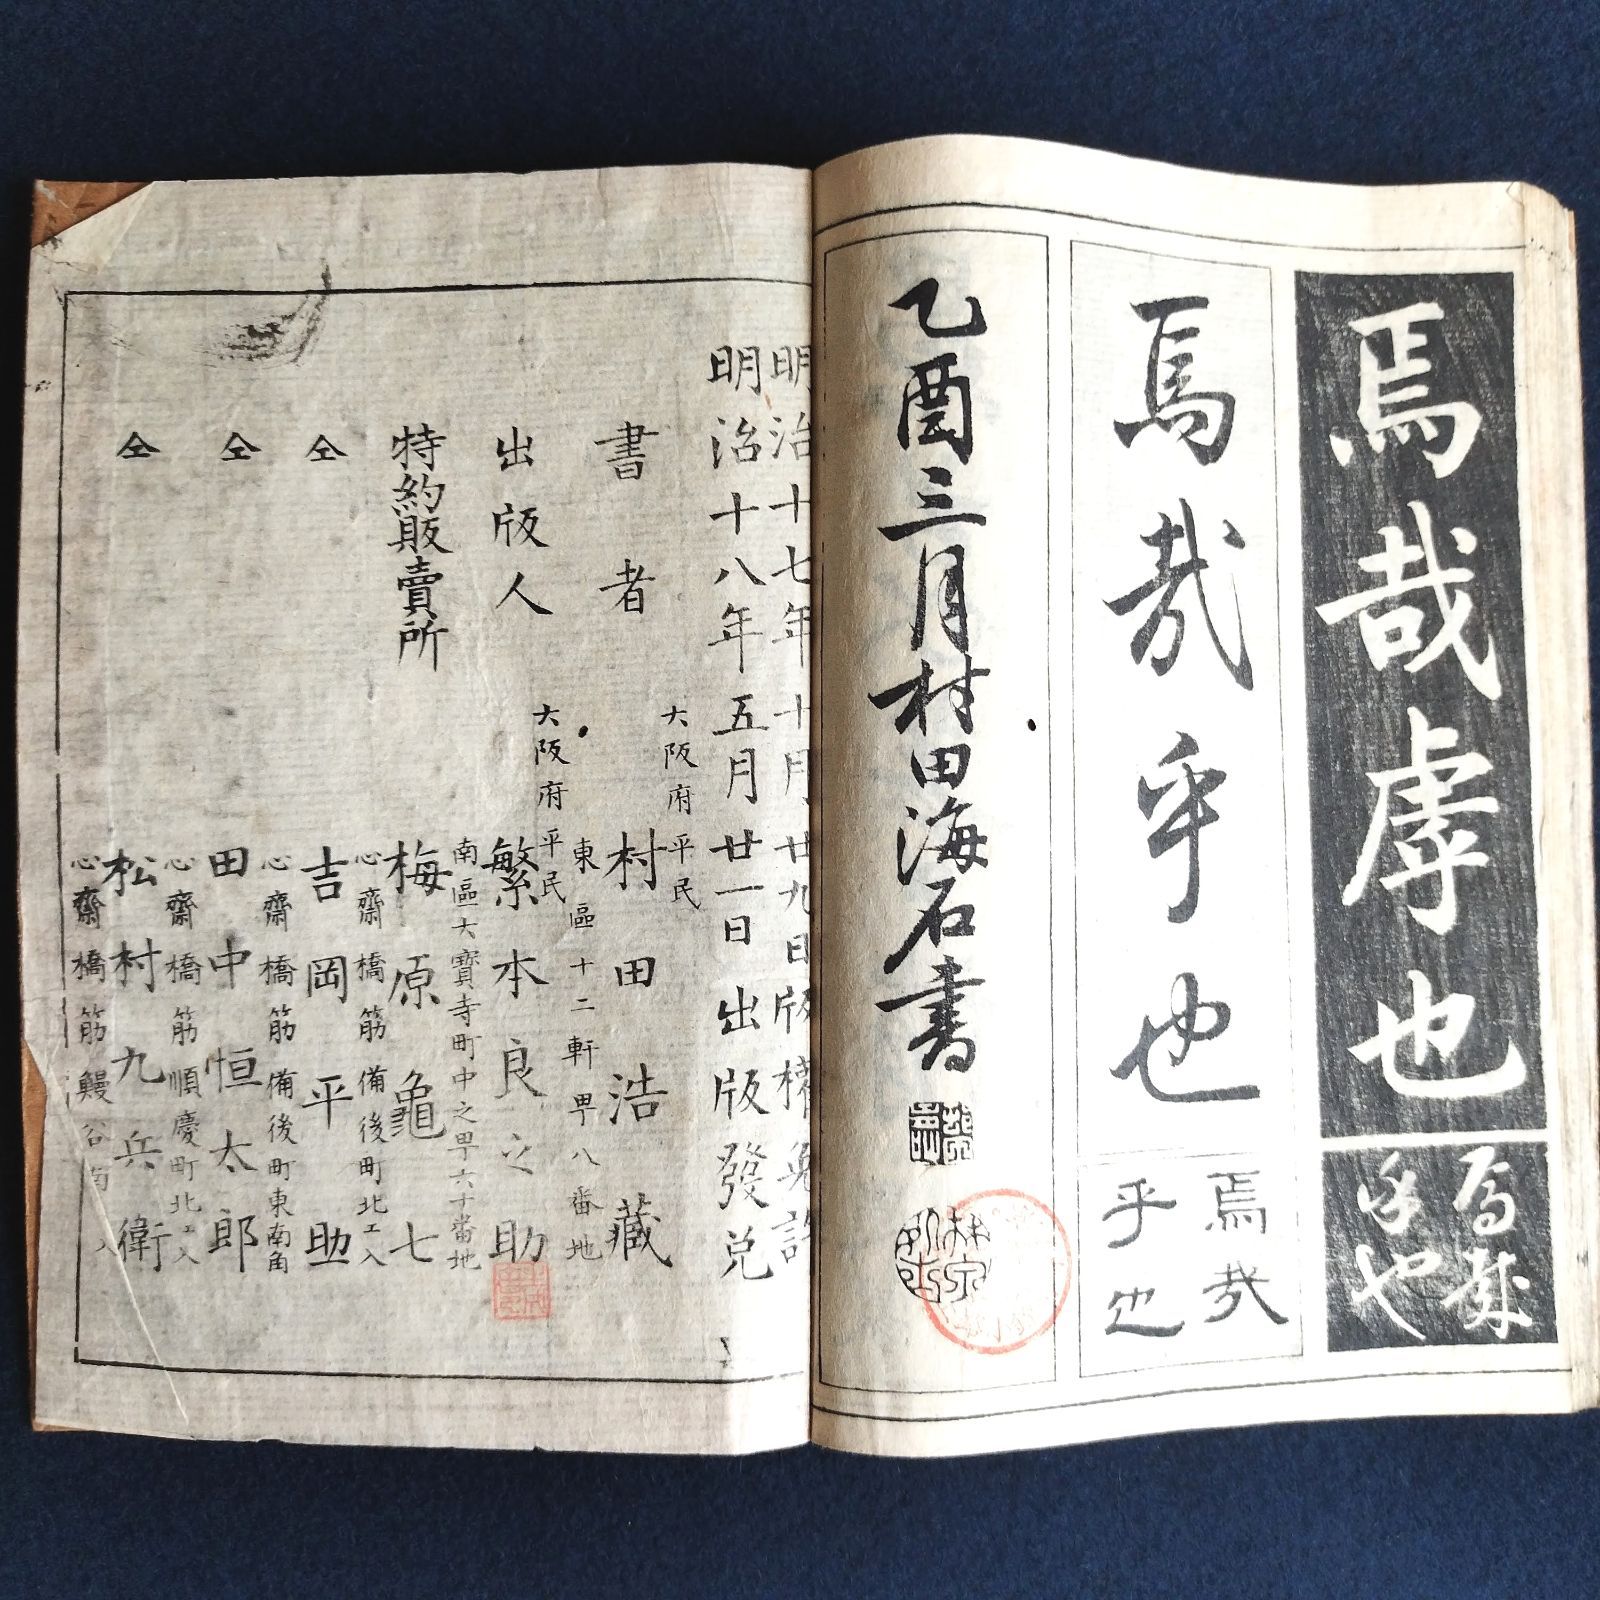 焉哉乎也
焉哉
乎也
焉哉乎也
焉哉
乎也
乙酉三月村田海石書
明治十七年十月廿九日版權免許
明治十八年五月廿一日出版發兌
大阪府平民
書者 村田浩藏
東區十二軒甼八番地
大阪府平民
出版人 繁本良之助
南區大寳寺町中之甼六十番地
特約販賣所 梅原龜七
心齋橋筋備後町北エ入
仝 吉岡平助
心齋橋筋備後町東南角
仝 田中恒太郎
心齋橋筋順慶町北エ入
仝 松村九兵衛
心齋橋筋鰻谷南入